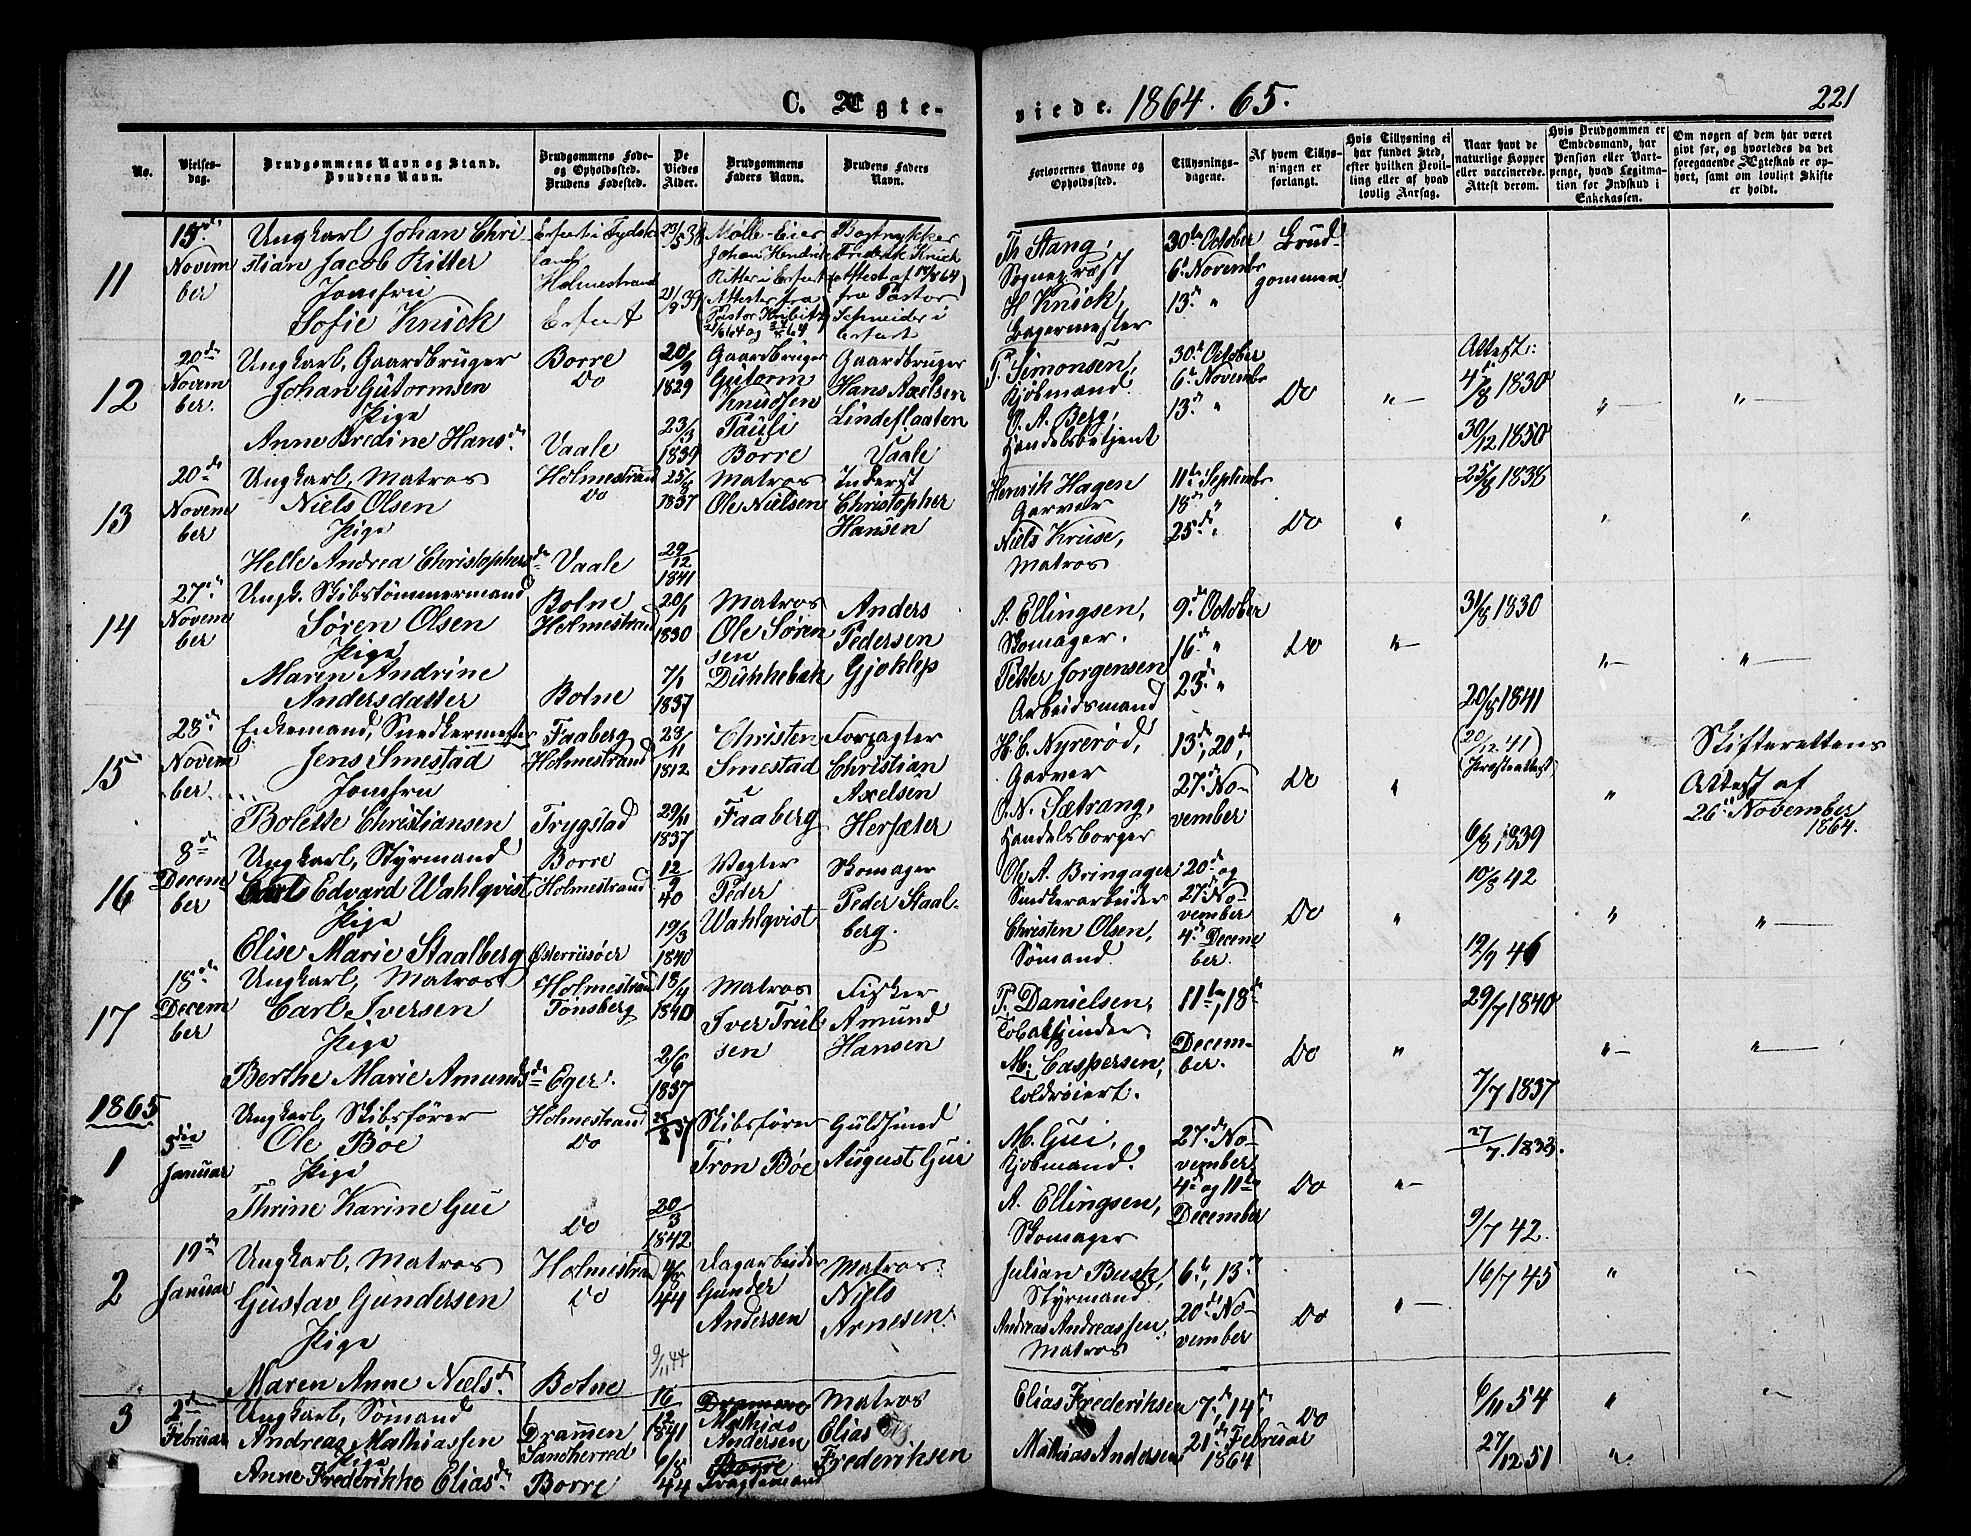 C. Ægte-
viede. 1864. 65.
221
No.
Vielses-
dag.
Brudgommens Navn og Stand.
Brudens Navn.
Brudgommens Føde-
og Opholdssted.
Brudens Fødested.
De
Viedes
Alder.
Brudgommens
Faders Navn.
Brudens Faders
Navn.
Forlovernes Navne og
Opholdssted.
Tillysnings-
dagene.
Af hvem Tillys-
ningen er
forlangt.
Hvis Tillysning ei
har fundet Sted,
efter hvilken Bevil-
ling eller af hvad
lovlig Aarsag.
Naar havt de
naturlige Kopper
eller vaccinerede.
Attest derom.
Hvis Brudgommen er
Embedsmand, har
Pension eller Vart-
penge, hvad Legitima-
tion for Indskud i
Enkekassen.
Om nogen af dem har været
givt for, og hvorledes da det
foregaaende Ægteskab er op-
hørt, samt om lovligt Skifte
er holdt.
11
Novem
ber
Ungkarl Johan Chri
stian Jacob Ritter
Jomfru
Sofie Knick
Erfurt i Tydsk
land
Holmestrand
Erfurt
Mølle-Eier
Johan Hendrik
Ritter i Erfurt
Attester fra
Bogtrykker
Frederik Knick
fra Pastor
Schneider i
Erfurt
Th Stang,
Sognepræst
H Knick,
Bagermester
30te October
6te Novembr
13de "
Brud-
gommen
12
20de
Novem
ber.
Ungkarl, Gaardbruger
Johan Gutormsen
Pige
Anne Bredine Hansd.
Borre
Do
Vaale
20/9
1829
23/3
1839
Gaardbruger
Gutorm
Knudsen
Pauli
Borre
Gaardbruger
Hans Axelsen
Lindeflaaten
Vaale
P. Simonsen,
Kjøbmand.
O. A. Berg,
Handelsbetjent
30te October
6te Novembr
13de "
Do
" —
Attest:
4/8 1830
30/12 1850
" —
" —
13
20de
Novem
ber
Ungkarl, Matros
Niels Olsen
Pige
Helle Andrea Christophersd.
Holmestrand
Do
Vaale
25/8
1837
29/12
1841
Matros
Ole Nielsen
Inderst
Christopher
Hansen
Henrik Hagen
Garver
Niels Kruse,
Matros
11te Septembr
18de "
25de "
Do
"
25/8 1838
"
"
14
27de
Novem
ber
Ungk. Skibstømmermand
Søren Olsen
Pige
Maren Andrine
Andersdatter
Botne
Holmestrand
Botne
20/1
1830
7/1
1837
Matros
Ole Søren
sen
Dukkebak
Anders
Pedersen
Gjoklep
A. Ellingsen,
Skomager.
Petter Jorgensen
Arbeidsmand
9de October
16de "
23de "
Do
" —
31/8 1830
20/8 1841
" —
" —
15
28de
Novem
ber
Enkemand, Snedkermester
Jens Smestad
Jomfru
Bolette Christiansen
Faaberg
Holmestrand
Trygstad
23/11
1812
29/11
1837
Christen
Smestad
i
Faaberg
Forpagter
Christian
Axelsen
Hersæter
H. C. Nyrerød,
Garver
O. N. Sætrang,
Handelsborger
13de, 20de,
27de No-
vember
Do
"
20/12 41
Præsteattest
6/8 1839
"
Skifterettens
Attest af
26de November
1864.
16
8de
Decem
ber
Ungkarl, Styrmand
Carl Edvard Wahlqvist
Pige
Elise Marie Staalberg
Borre
Holmestrand
Østerriisøer
12/9
40
19/3
1840
Vegter
Peder
Wahlqvist
Skomager
Peder Staal-
berg.
Ole A. Bringager
Snedkerarbeider
Christen Olsen,
Sømand
20de og
27de No-
vember
4de Decem
ber.
Do
"
10/8 42
19/7 46
"
" —
17
18de
Decem
ber
Ungkarl, Matros
Carl Iversen
Pige
Berthe Marie Amundsd.
Holmestrand
Tønsberg
Eger.
18/11
1840
2/6
1837
Matros
Iver Truls
sen
Fisker
Amund
Hansen
P. Danielsen,
Tobakspinder
M. Caspersen,
Toldroiert.
11te, 18de
Decem-
ber.
Do
"
29/7 1840
7/7 1837
" —
" —
1865
1
5die
Januar
Ungkarl, Skibsfører
Ole Boe
Pige
Thrine Karine Gui
Holmestrand
Do
Do
20/3
1842
Skibsfører
Tron Bøe
Guldsmed
August Gui
M. Gui,
Kjøbmand.
A. Ellingsen,
Skomager
27de No-
vember,
4de og 11te
December
Do
" —
27/7. 1833.
9/7 42.
2
19de
Januar
Ungkarl, Matros
Gustav Gundersen
Pige
Maren Anne Nielsd.
Holmestran
Do
Botne
4/8
44
9/11 44
Dagarbeider
Gunder
Andersen
Matros
Niels
Arnesen.
Julian Busk,
Styrmand
Andreas Andreassen,
Matros
6te, 13de
20de No-
vember
Do
" —
16/7 45
"
3
2den
Februar
Ungkarl, Sømand
Andreas Mathiassen
Pige
Anne Frederikke Eliasd.
Dramen
Sandherred
Borre
16/12
1841
6/8
44
Mathias
Andersen
Borre
Fragtemand
Matros
Elias
Frederiksen
Elias Frederiksen
Mathias Andersen
7de, 14de,
21de Februar
1864
Do
6/11 54
27/12 51
"
"